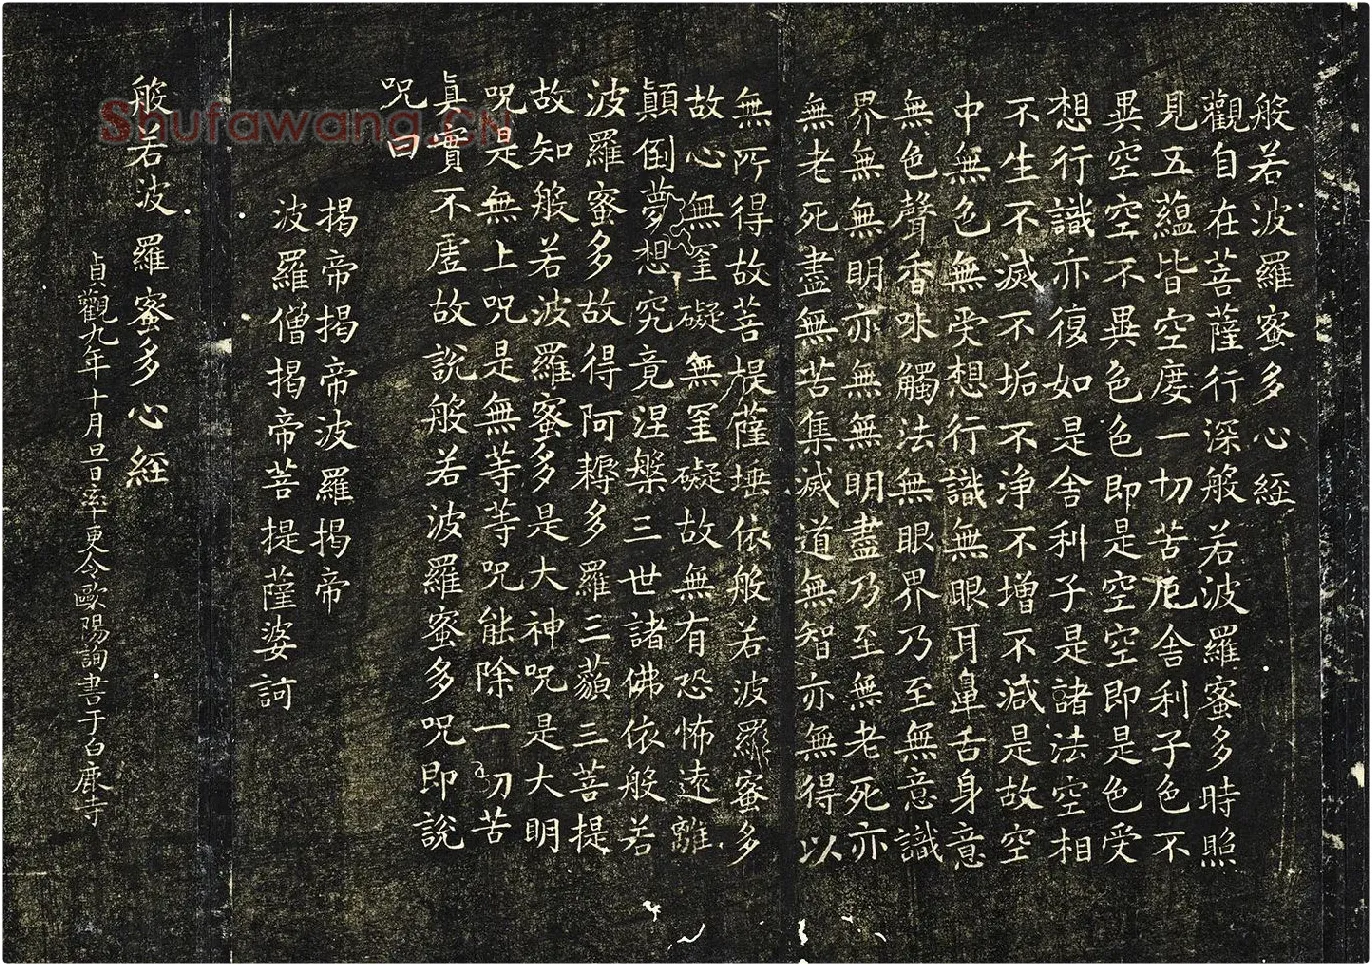 般若波羅蜜多心經
觀自在菩薩行深般若波羅蜜多時照
見五蘊皆空度一切苦厄舍利子色不
異空空不異色色即是空空即是色受
想行識亦復如是舍利子是諸法空相
不生不滅不垢不淨不增不減是故空
中無色無受想行識無眼耳鼻舌身意
無色聲香味觸法無眼界乃至無意識
界無無明亦無無明盡乃至無老死亦
無老死盡無苦集滅道無智亦無得以
無所得故菩提薩埵依般若波羅蜜多
故心無罣礙無罣礙故無有恐怖遠離
顛倒夢想究竟涅槃三世諸佛依般若
波羅蜜多故得阿耨多羅三藐三菩提
故知般若波羅蜜多是大神咒是大明
咒是無上咒是無等等咒能除一切苦
真實不虛故說般若波羅蜜多咒即說
咒曰
揭帝揭帝波羅揭帝
波羅僧揭帝菩提薩婆訶
般若波羅蜜多心經
貞觀九年十月旦日率更令歐陽詢書于白鹿寺
Shufawang.CN